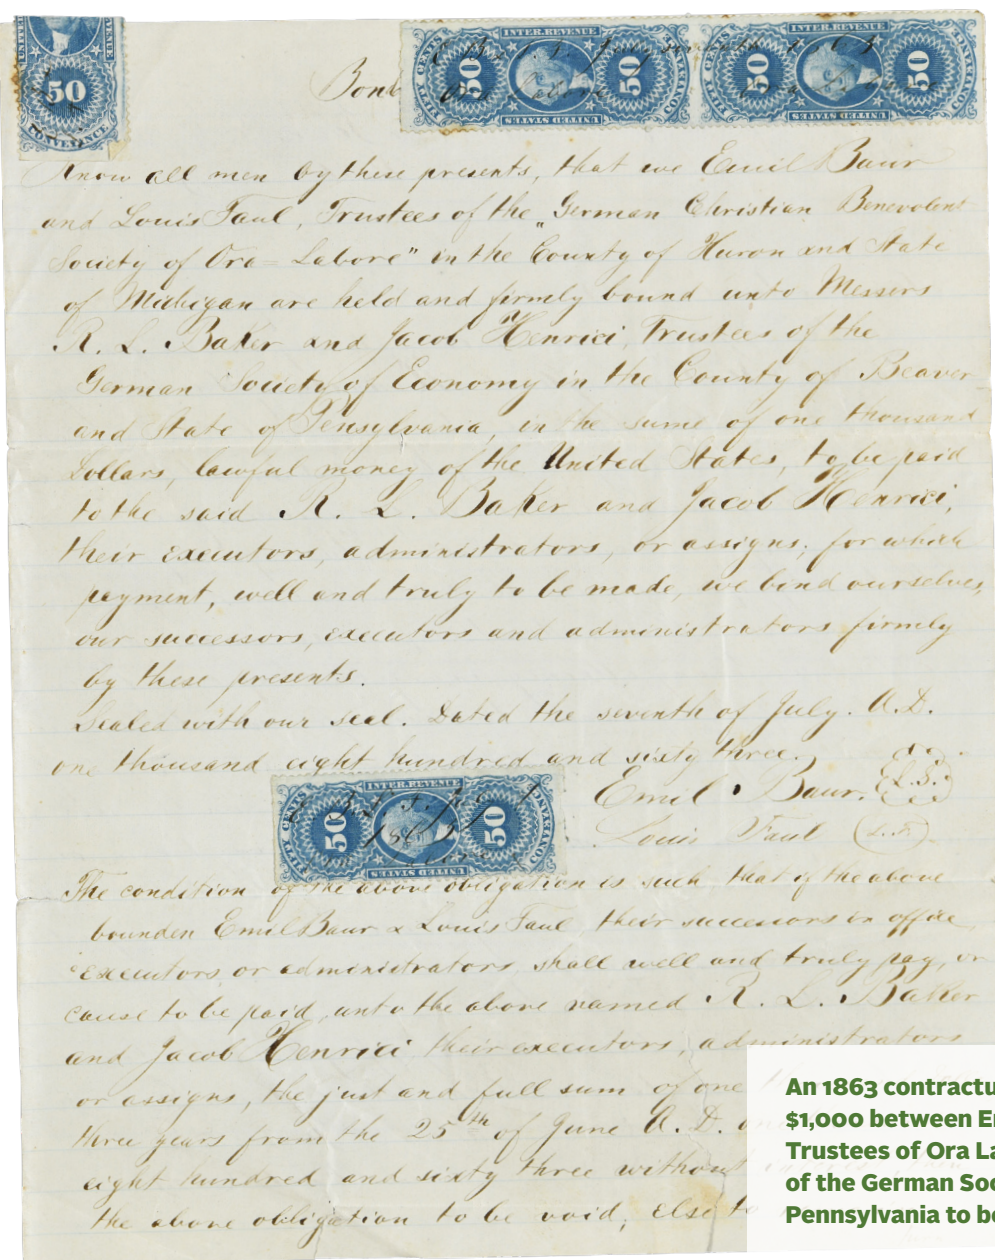 Bond
INTER. REVENUE
FIFTY CENTS
50
50
CONVEYANCE
UNITED STATES
INTER. REVENUE
FIFTY CENTS
50
50
CONVEYANCE
UNITED STATES
50
CONVEYANCE
Know all men by these presents, that we Emil Baur
and Louis Faul, Trustees of the „German Christian Benevolent
Society of Ora-Labore" in the County of Huron and State
of Michigan are held and firmly bound unto Messers
R. L. Baker and Jacob Henrici, Trustees of the
German Society of Economy in the County of Beaver
and State of Pensylvania, in the sume of one thousand
Dollars, lawful money of the United States, to be paid
to the said R. L. Baker and Jacob Henrici,
their executors, administrators, or assigns; for which
payment, well and truly to be made, we bind ourselves,
our successors, executors and administrators firmly
by these presents.
Sealed with our seal. Dated the seventh of July. A.D.
one thousand eight hundred and sixty three.
Emil Baur. L.S.
Louis Faul
INTER. REVENUE
FIFTY CENTS
50
50
CONVEYANCE
UNITED STATES
The condition of the above obligation is such that if the above
bounden Emil Baur & Louis Faul, their successors in office,
executors or administrators, shall well and truly pay, or
cause to be paid, unto the above named R. L. Baker
and Jacob Henrici their executors, administrators
or assigns, the just and full sum of one
three years from the 25th of June A. D.
eight hundred and sixty three without
the above obligation to be void; else to
An 1863 contractu
$1,000 between E
Trustees of Ora La
of the German Soc
Pennsylvania to b